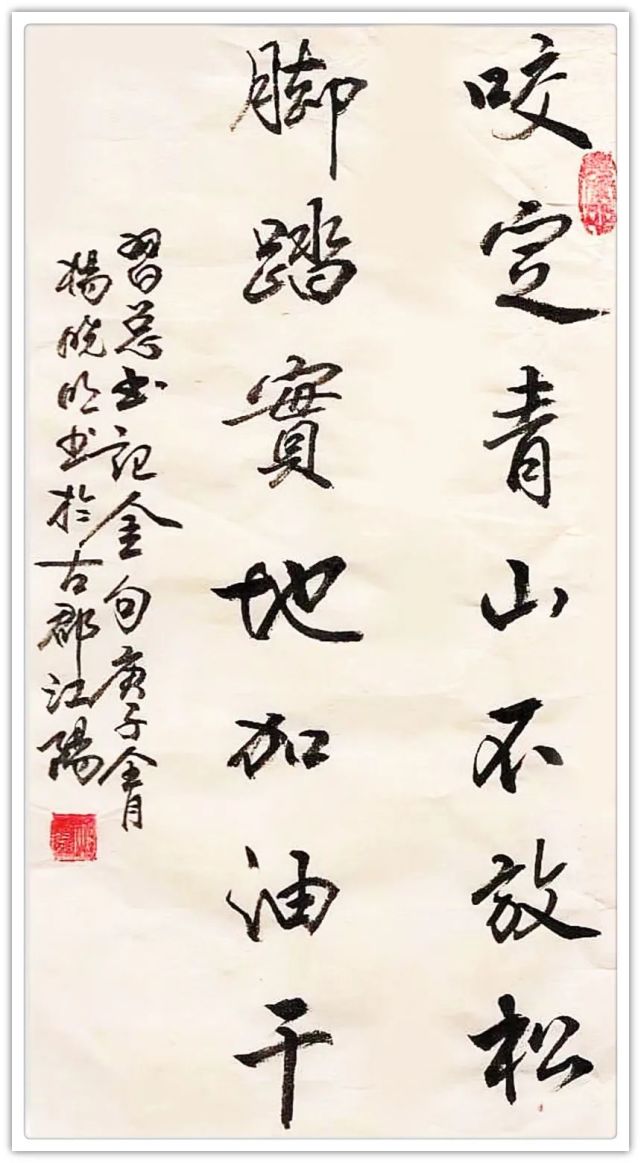 咬定青山不放松
脚踏實地加油干
習总书记金句庚子金月
楊晓明书於古郡江陽